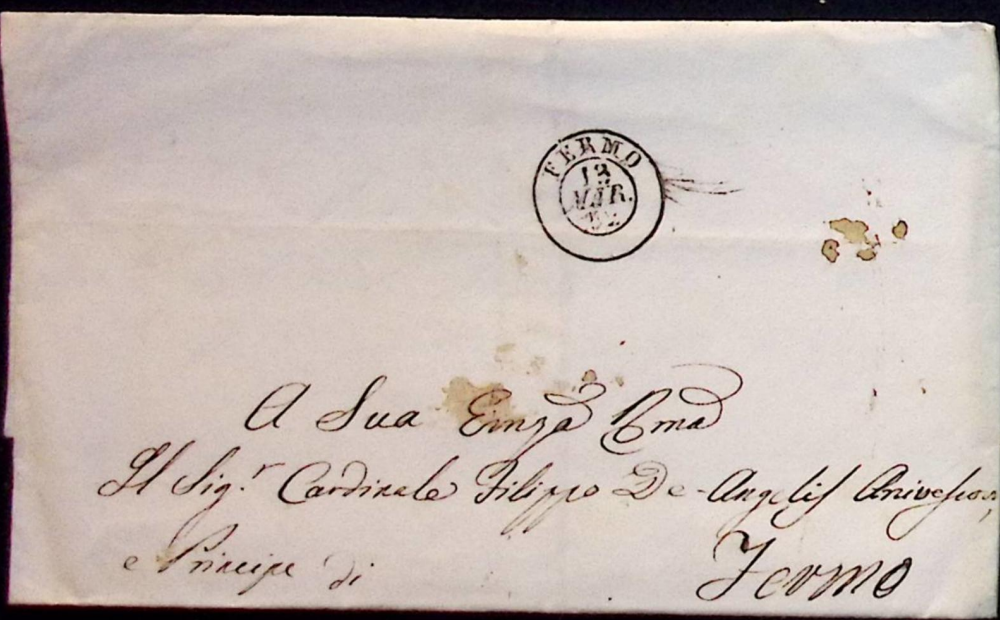 FERMO
13
MAR.
52
A Sua Emza Rma
Il Sig.r Cardinale Filippo De-Angelis Arivescov,
e Principe di
Fermo